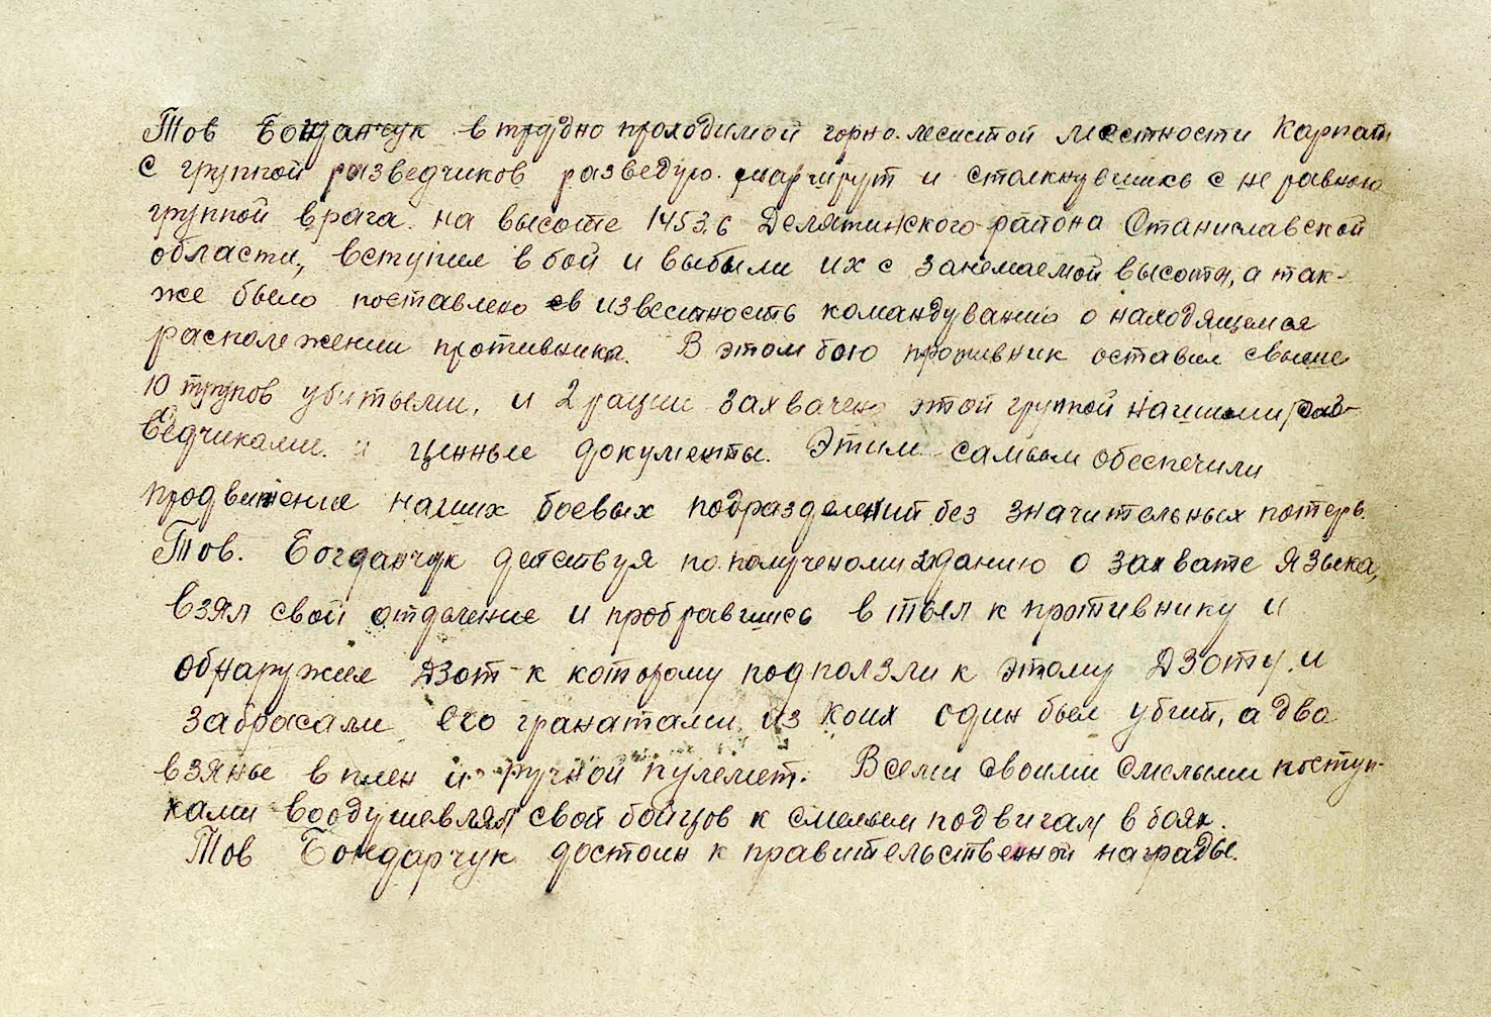 Тов Богданчук в трудно проходимой горно. лесистой местности Карпат
с группой разведчиков разведую. маршрут и столкнувшись с не равною
группой врага. на высоте 1453.6 Делятинского района Станиславской
области, вступил в бой и выбыли их с занемаемой высоты, а так-
же было поставлено в известность командуванию о находящемся
расположении противника. В этом бою противник оставил свыше
10 трупов убитыми, и 2 рации захвачено этой группой нашими раз-
ведчиками. и ценные документы. Этим самым обеспечили
продвижение наших боевых подразделений без значительных потерь.
Тов. Богданчук действуя по полученому зданию о захвате языка,
взял свой отделение и пробравшись в тыл к противнику и
обнаружил дзот к которому подползли к этому дзоту. и
забросали его гранатами из коих один был убит, а два
взяные в плен и ручной пулемет. Всеми своими смелыми поступ-
ками воодушевлял свой бойцов к смелым подвигам в боях.
Тов Бондарчук достоин к правительственной награды.